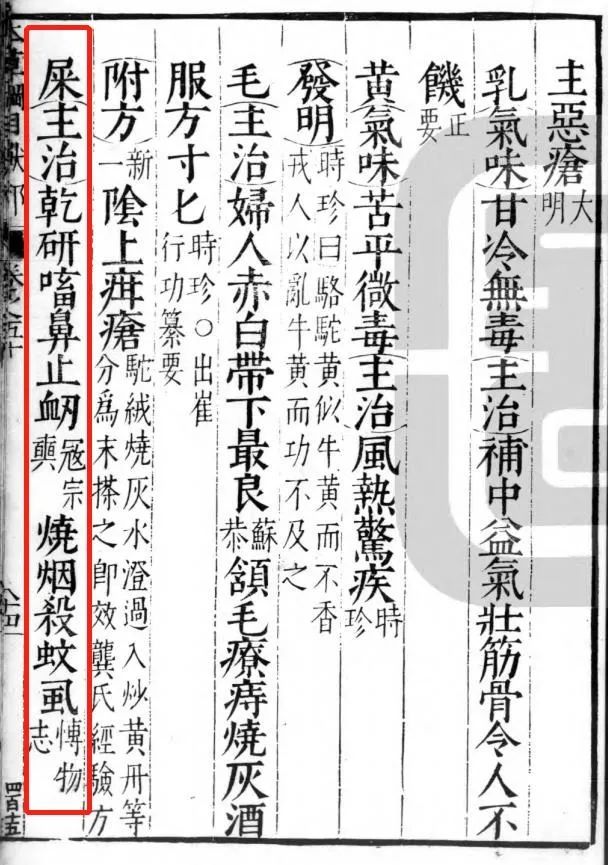 主惡瘡大明
乳氣味甘冷無毒主治補中益氣壯筋骨令人不
饑正要
黃氣味苦平微毒主治風熱驚疾時珍
發明時珍曰駱駝黃似牛黃而不香戎人以亂牛黃而功不及之
毛主治婦人赤白帶下最良蘇恭頷毛療痔燒灰酒
服方寸匕時珍○出崔行功纂要
附方新一陰上疳瘡駝絨燒灰水澄過入炒黃丹等分爲末搽之卽效龔氏經驗方
屎主治乾研㗜鼻止衂寇宗奭燒烟殺蚊虱博物志
本草綱目獸部
卷之五十
四百十五